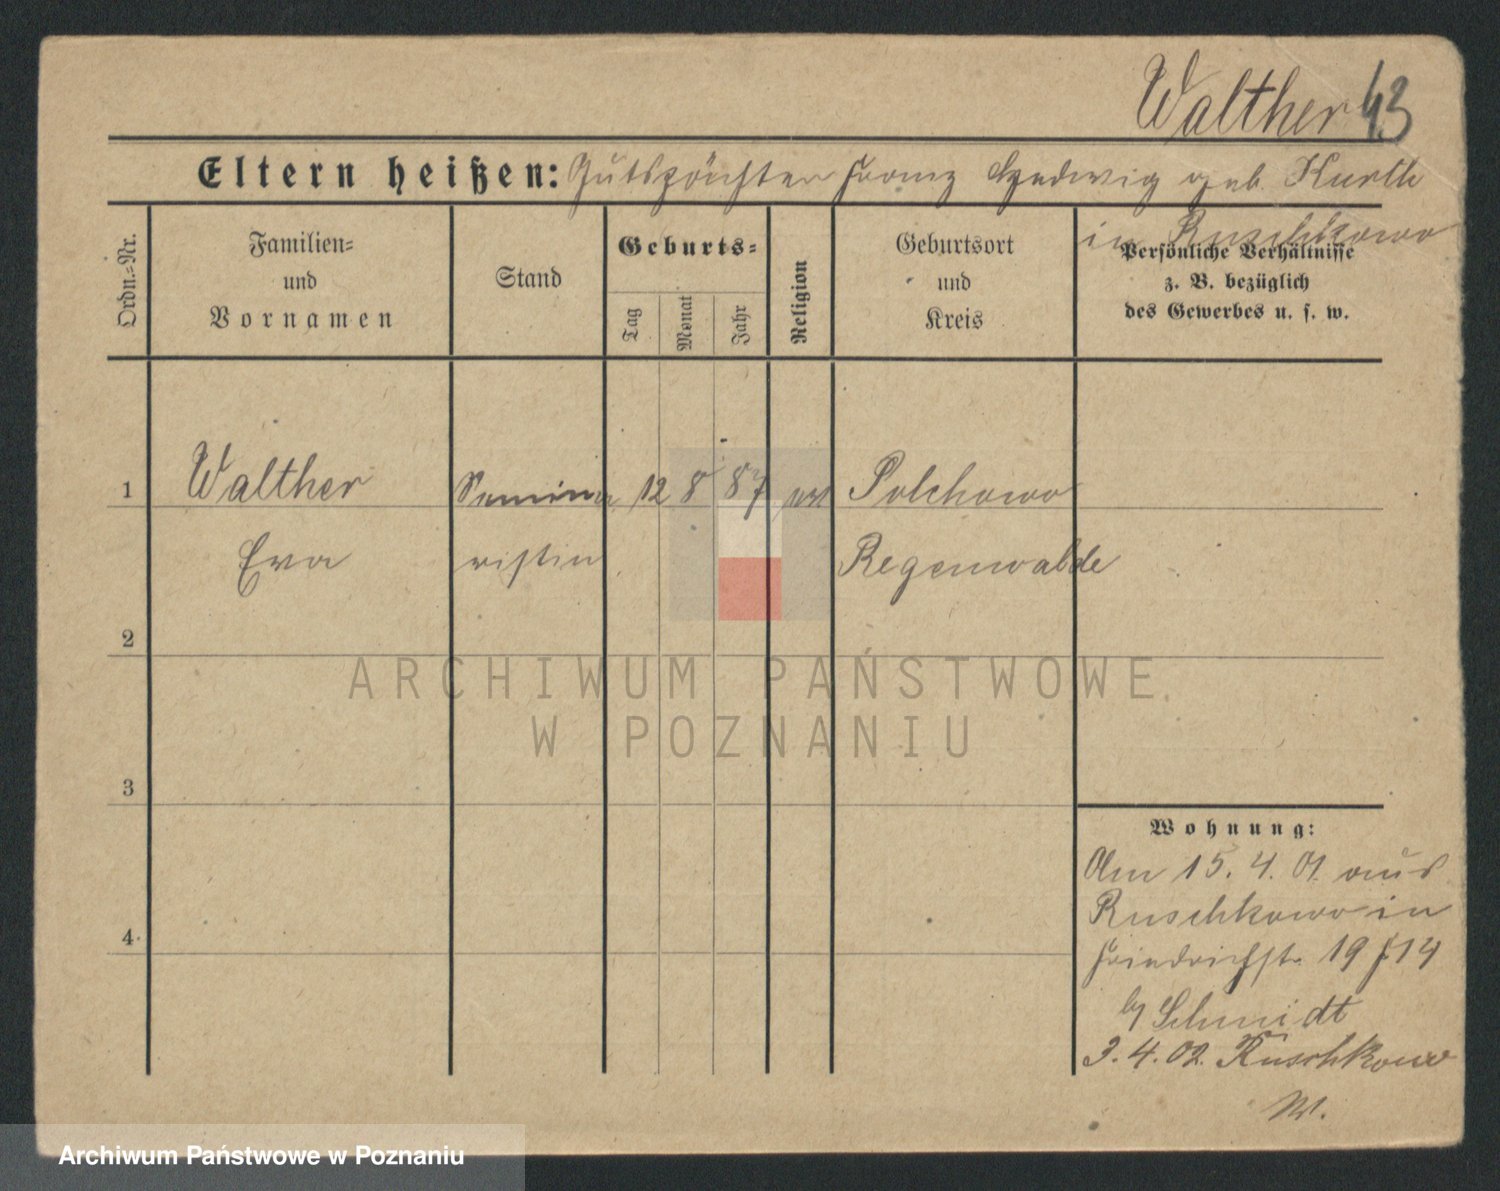 Walther 43
Eltern heißen: Gutspächter Franz Hedwig geb. Kurth
in Ruschkowo
Ordn.-Nr.
Familien-
und
Vornamen
Stand
Geburts-
Tag
Monat
Jahr
Religion
Geburtsort
und
Kreis
Persönliche Verhältnisse
z. B. bezüglich
des Gewerbes u. s. w.
1 Walther Semina 12 8 87 ev Polchowo
Eva ristin Regenwalde
2
3
4
ARCHIWUM PAŃSTWOWE
W POZNANIU
Wohnung:
Am 15. 4. 01. aus
Ruschkowo in
Friedrichstr. 19 14
b/ Schmidt
3. 4. 02. Ruschkowo
Archiwum Państwowe w Poznaniu